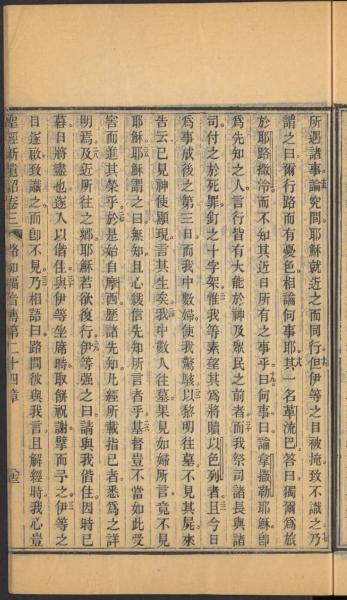 所遇諸事論究間耶穌就近之而同行但伊等之目被掩致不識之乃
謂之曰爾行路而有憂色相論何事耶其一名革流巴答曰獨爾爲旅
於耶路撒冷而不知其近日所有之事乎曰何事曰論拿撒勒耶穌卽
爲先知之人言行皆有大能於神及衆民之前者而我祭司諸長與諸
司付之於死罪釘之十字架惟我等素望其爲將贖以色列者且今日
爲事成後之第三日而我中數婦使我驚駭以黎明往墓不見其屍來
告云已見神使顯現言其生矣我中數人往墓果見如婦所言竟不見
耶穌耶穌謂之曰無知且心緩信先知所言者乎基督豈不當如此受
害而進其榮乎於是始自摩西歷諸先知凡經所載指己者悉爲之詳
明焉及近所往之鄉耶穌若欲復行伊等强之曰請與我偕住因時已
暮日將盡也遂入以偕住與伊等坐席時取餅祝謝擘而予之伊等之
目遂啟致識之而卽不見乃相語曰路間彼與我言且解經時我心豈
聖經新遺詔卷三 路加福音傳第二十四章